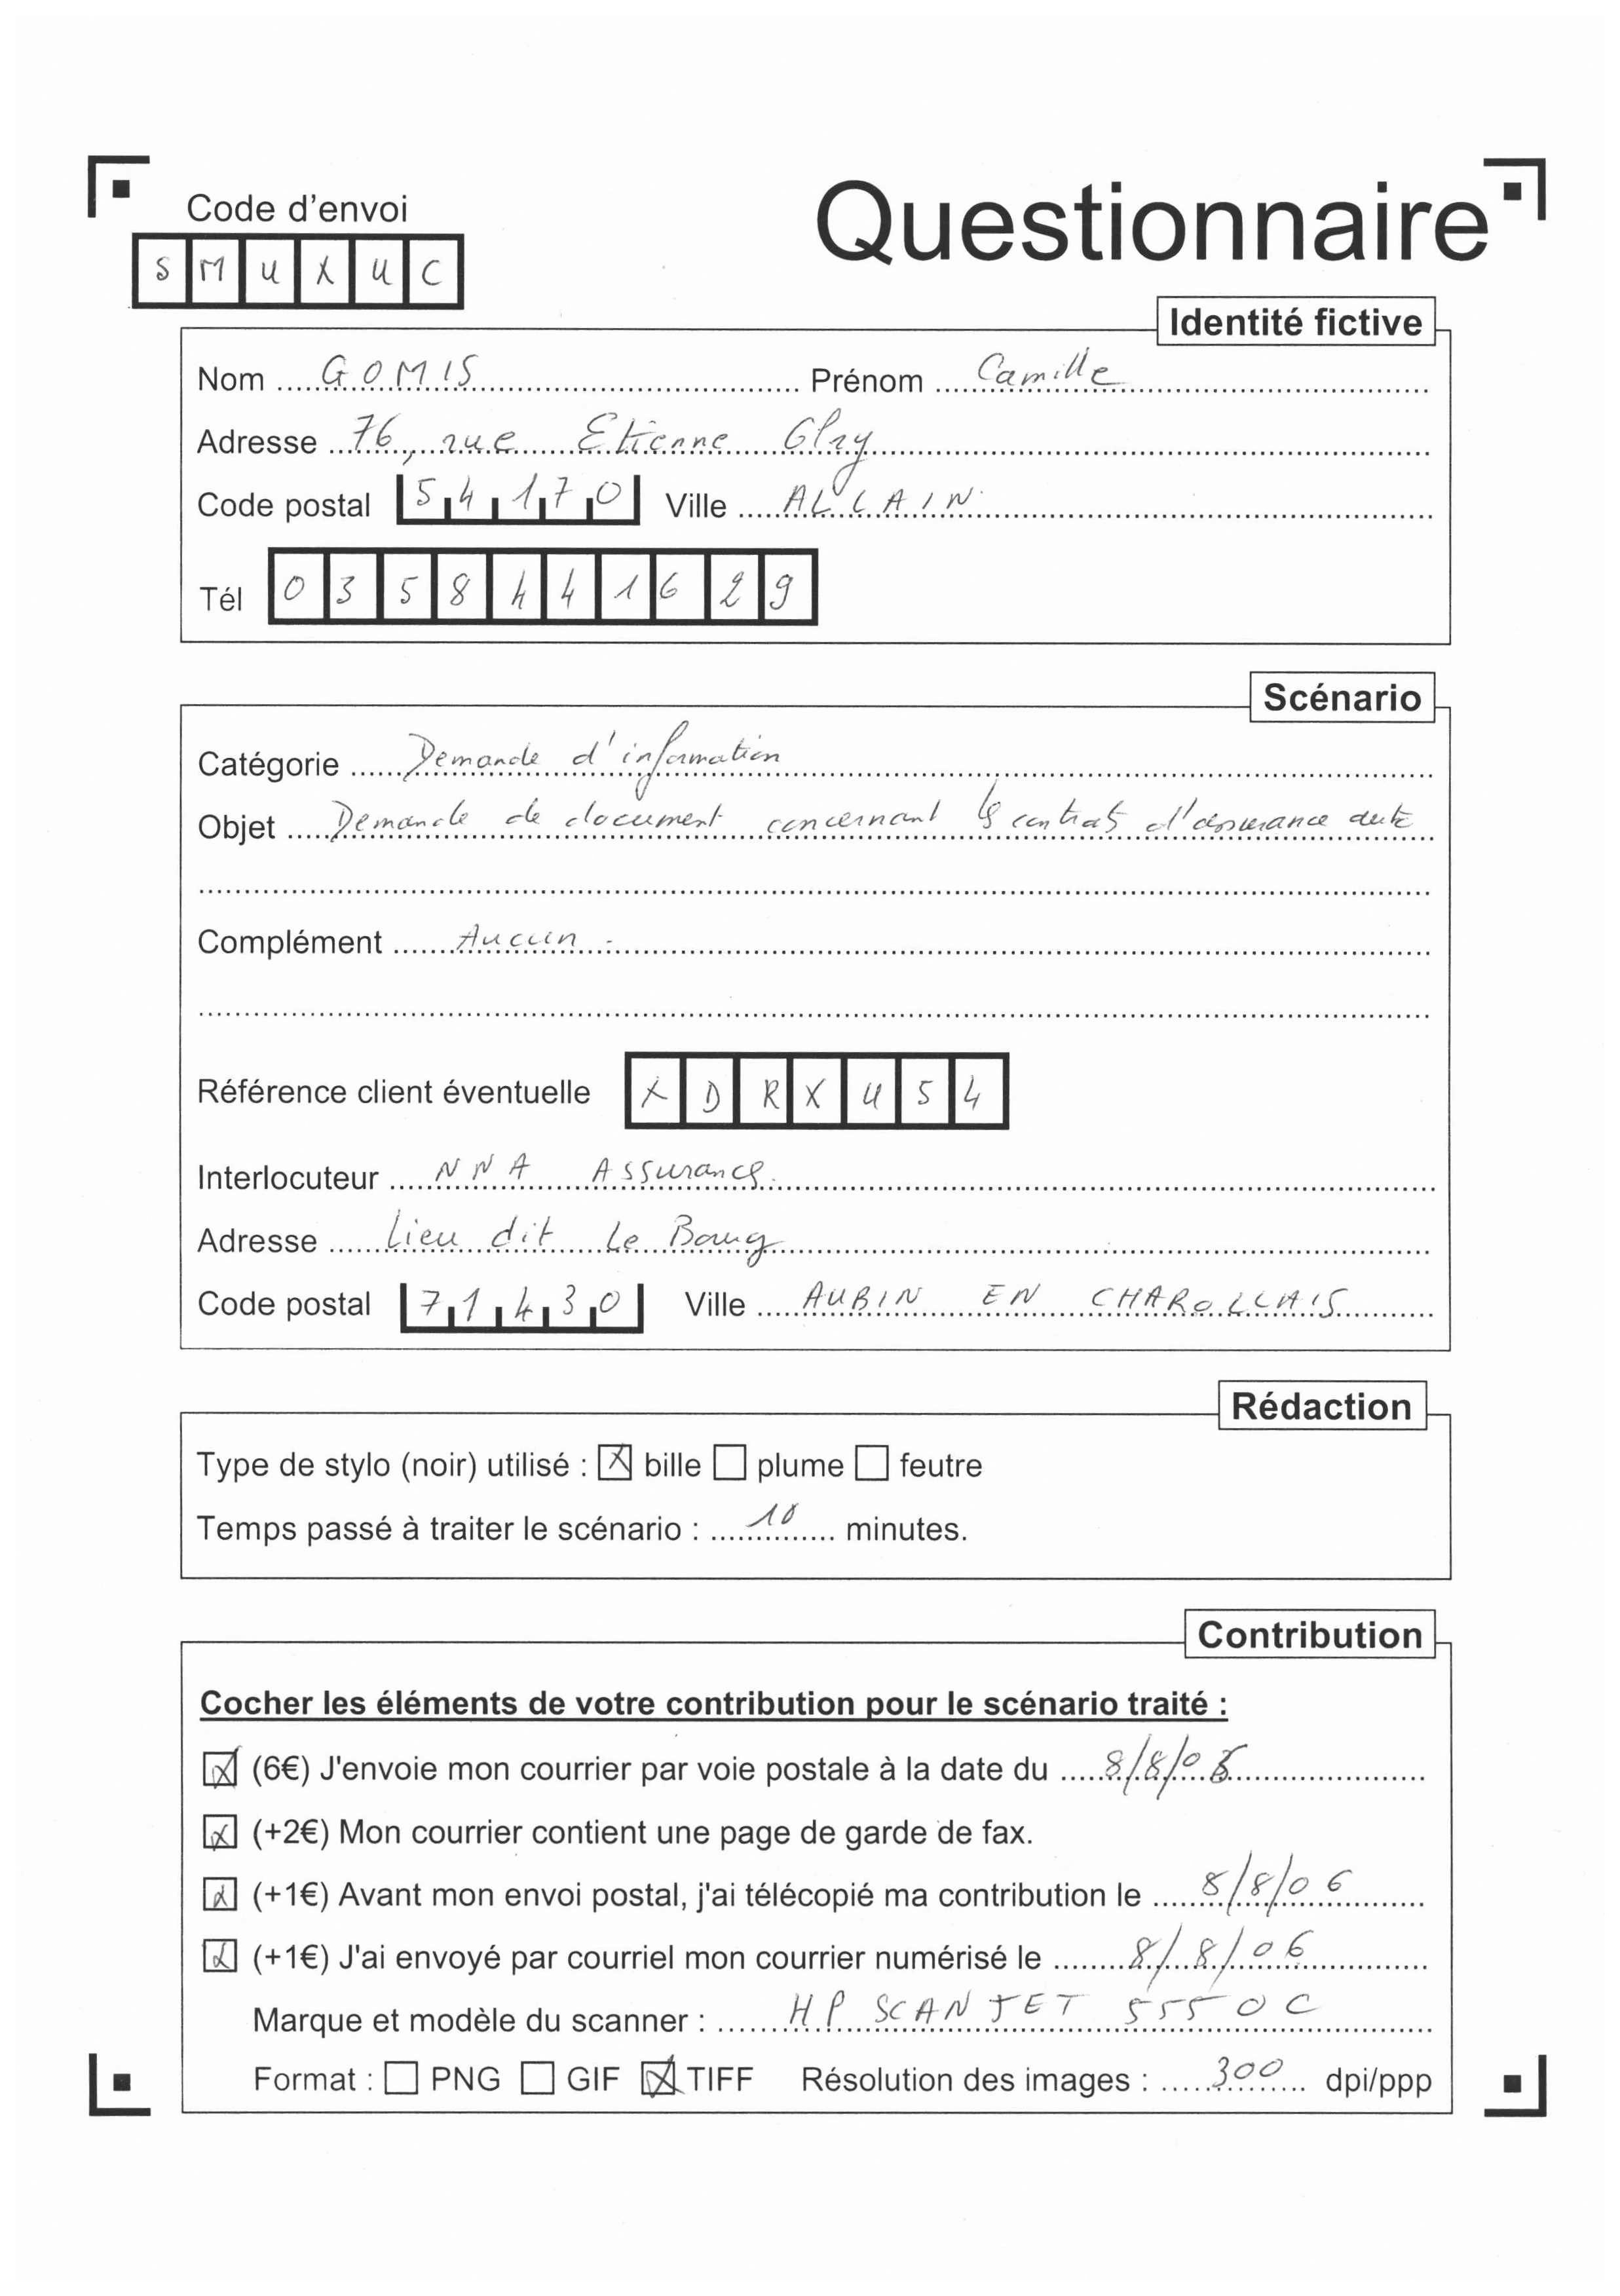 Code d'envoi
Questionnaire
S M U X U C
Identité fictive
Nom GOMIS Prénom Camille
Adresse 76, rue Etienne
Code postal 54170 Ville ALLAIN
Tél 0358441629
Scénario
Catégorie Demande d'information
Objet Demande de document concernant les contrats d'assurance auto
Complément Aucun.
Référence client éventuelle X D R X U 5 4
Interlocuteur NNA Assurances.
Adresse Lieu dit Le Bourg
Code postal 71430 Ville AUBIN EN CHAROLLAIS
Rédaction
Type de stylo (noir) utilisé : bille plume feutre
Temps passé à traiter le scénario : 10 minutes.
Contribution
Cocher les éléments de votre contribution pour le scénario traité :
(6€) J'envoie mon courrier par voie postale à la date du 8/8/06
(+2€) Mon courrier contient une page de garde de fax.
(+1€) Avant mon envoi postal, j'ai télécopié ma contribution le 8/8/06
(+1€) J'ai envoyé par courriel mon courrier numérisé le 8/8/06
Marque et modèle du scanner : HP SCANJET 5550C
Format : PNG GIF TIFF Résolution des images : 300 dpi/ppp